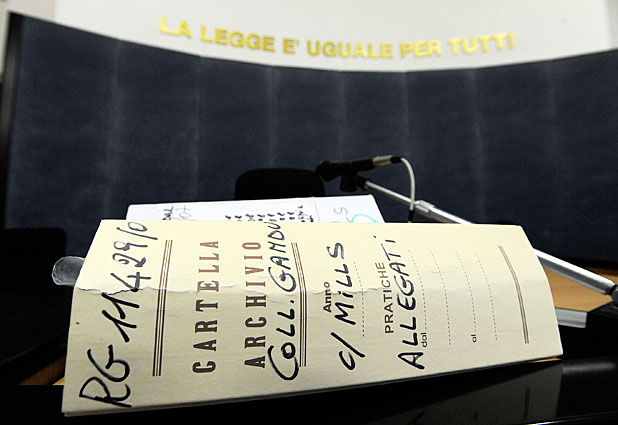 LA LEGGE E' UGUALE PER TUTTI
RG 11429/0
CARTELLA
ARCHIVIO
COLL. GANDU
Anno
c/ MILLS
PRATICHE
ALLEGATI
dal
al